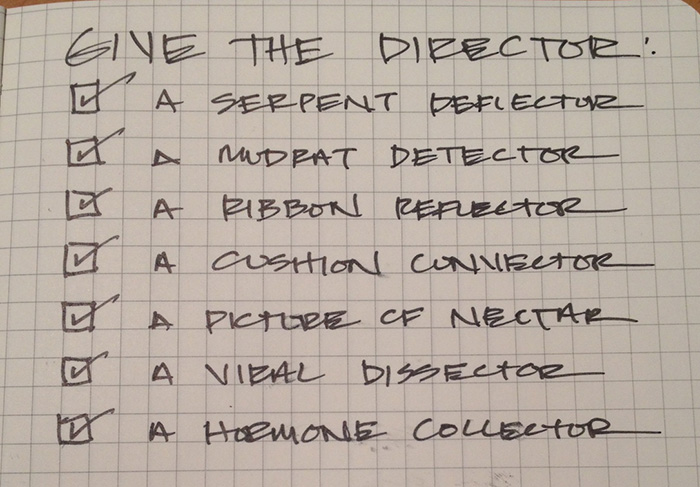 GIVE THE DIRECTOR:
A SERPENT DEFLECTOR
A MUDRAT DETECTOR
A RIBBON REFLECTOR
A CUSHION CONVECTOR
A PICTURE OF NECTAR
A VIRAL DISSECTOR
A HORMONE COLLECTOR